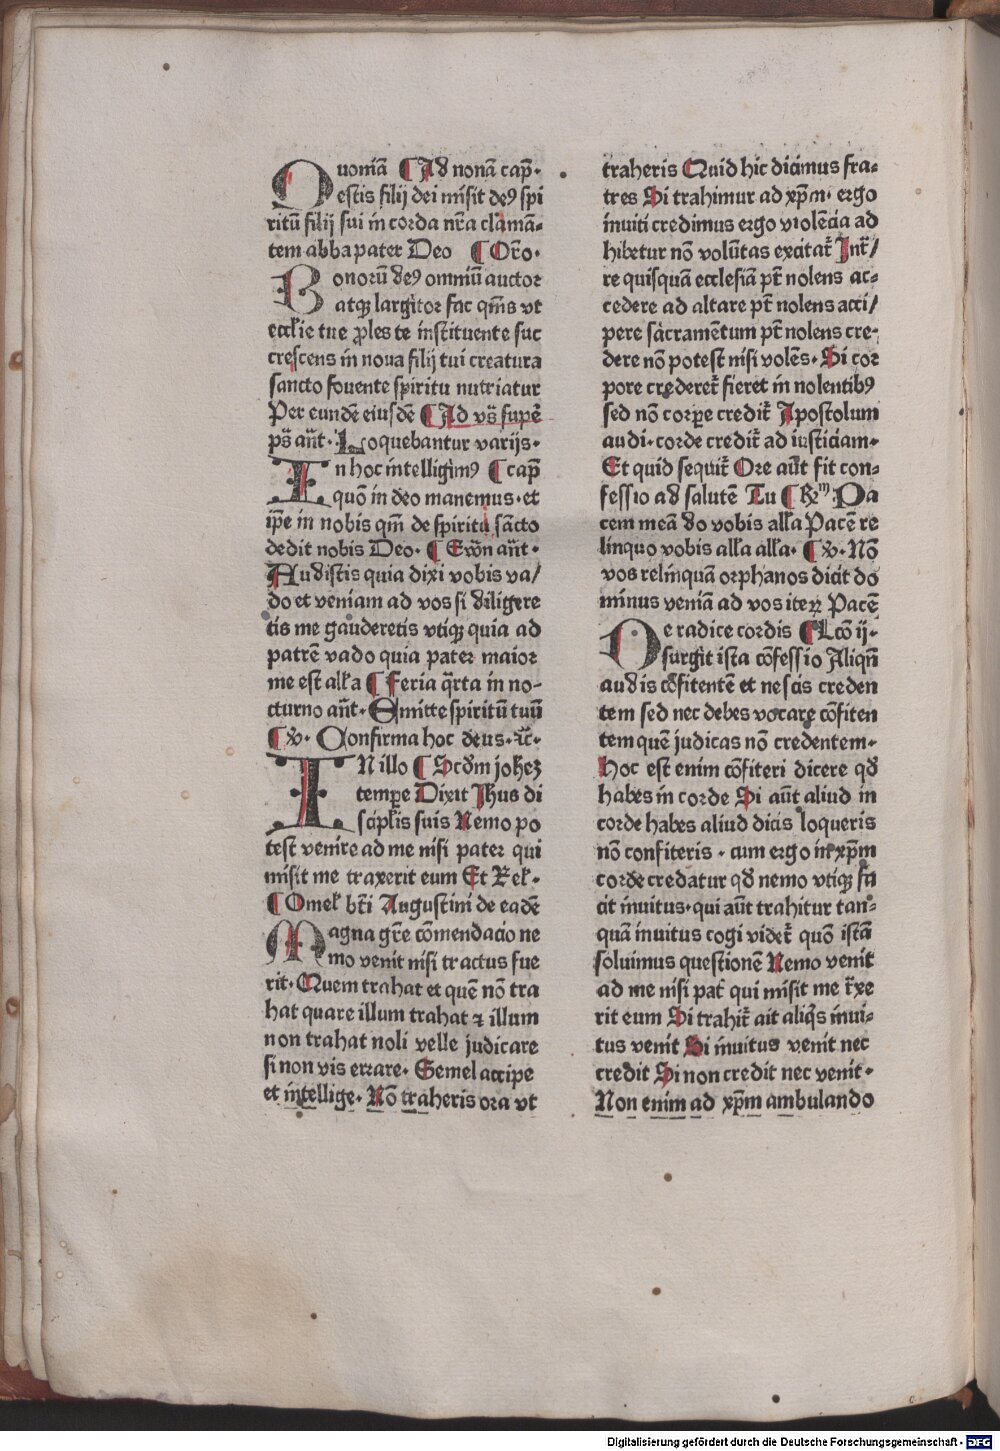 Quoniā ¶ Ad nonā cap̄·
estis filij dei misit deꝰ spi
ritū filij sui in corda nr̄a clamā-
tem abba pater Deo ¶ Or̄o·
Bonorū deꝰ omniū auctor
atqꝫ largitor fac qm̄s vt
eccl̄ie tue ꝓles te instituente suc
crescens in noua filij tui creatura
sancto fouente spiritu nutriatur
Per eundē eiusdē ¶ Ad vs̄ supē
ps̄ an̄t· Loquebantur varijs·
In hoc intelligimꝰ ¶ cap̄
quō in deo manemus·et
ip̄e in nobis qm̄ de spiritu sācto
dedit nobis Deo· ¶ Ewn̄ an̄t·
Audistis quia dixi vobis va/
do et veniam ad vos si diligere
tis me gauderetis vtiqꝫ quia ad
patrē vado quia pater maior
me est all̄a ¶ Feria q̄rta in no-
cturno an̄t· Emitte spiritū tuū
¶ ꝟ· Confirma hoc deus·ꝛc̄·
IN illo ¶ Scd̄m joheꝫ
tempe Dixit Jhus di
scipl̄is suis Nemo po
test venire ad me nisi pater qui
misit me traxerit eum Et Rel̄·
¶ Omel̄ bt̄i Augustini de eadē
Magna gr̄e cōmendacio ne
mo venit nisi tractus fue
rit· Quem trahat et quē nō tra
hat quare illum trahat ꝛ illum
non trahat noli velle judicare
si non vis errare· Semel accipe
et intellige· Nō traheris ora vt
traheris Quid hic dicimus fra-
tres Si trahimur ad xp̄m· ergo
inuiti credimus ergo violēcia ad
hibetur nō volūtas excitat̄ Int̄/
re quisquā ecclesiā pt̄ nolens ac-
cedere ad altare pt̄ nolens acci/
pere sacramētum pt̄ nolens cre-
dere nō potest nisi volēs· Si cor
pore crederet̄ fieret in nolentibꝰ
sed nō corpe credit̄ Apostolum
audi·corde credit̄ ad iusticiam·
Et quid sequit̄ Ore aūt fit con-
fessio ad salutē Tu ¶ Rm̄ Pa
cem meā do vobis all̄a Pacē re
linquo vobis all̄a all̄a· ¶ ꝟ· Nō
vos relinquā orphanos dicit do
minus veniā ad vos iteꝝ Pacē
De radice cordis ¶ Lcō ij·
surgit ista cōfessio Aliqn̄
audis cōfitentē et nescis creden
tem sed nec debes vocare cōfiten
tem quē judicas nō credentem·
Hoc est enim cōfiteri dicere qd̄
habes in corde Si aūt aliud in
corde habes aliud dicis loqueris
nō confiteris· cum ergo in xp̄m
corde credatur qd̄ nemo vtiqꝫ fa
cit inuitus·qui aūt trahitur tan-
quā inuitus cogi videt̄ quō istā
soluimus questionē Nemo venit
ad me nisi pat̄ qui misit me t̄xe
rit eum Si trahit̄ ait aliq̄s inui-
tus venit Si inuitus venit nec
credit Si non credit nec venit·
Non enim ad xp̄m ambulando
Digitalisierung gefördert durch die Deutsche Forschungsgemeinschaft - DFG